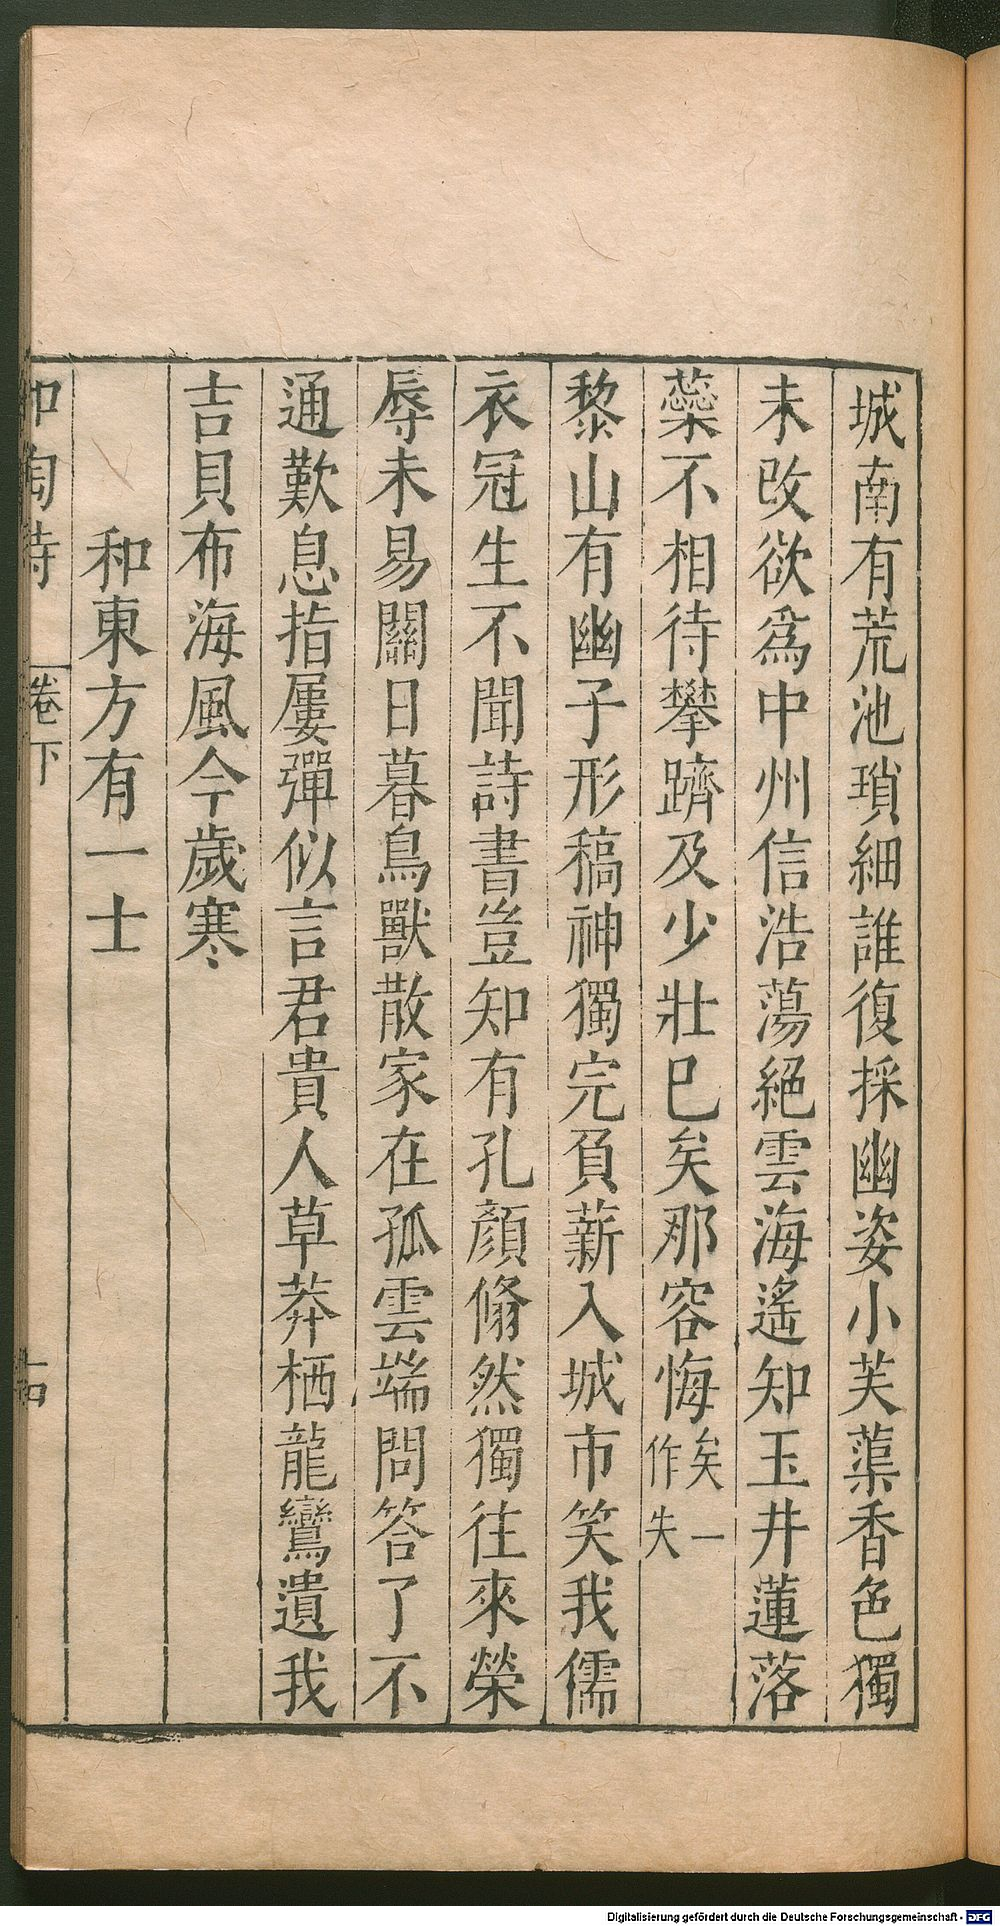 城南有荒池瑣細誰復採幽姿小芙蕖香色獨
未改欲爲中州信浩蕩絕雲海遙知玉井蓮落
蘂不相待攀躋及少壯巳矣那容悔矣一作失
黎山有幽子形稿神獨完負薪入城市笑我儒
衣冠生不聞詩書豈知有孔顏翛然獨往來榮
辱未易關日暮鳥獸散家在孤雲端問答了不
通歎息指屢彈似言君貴人草莽栖龍鸞遺我
吉貝布海風今歲寒
和東方有一士
和陶詩 卷下 十四
Digitalisierung gefördert durch die Deutsche Forschungsgemeinschaft - DFG